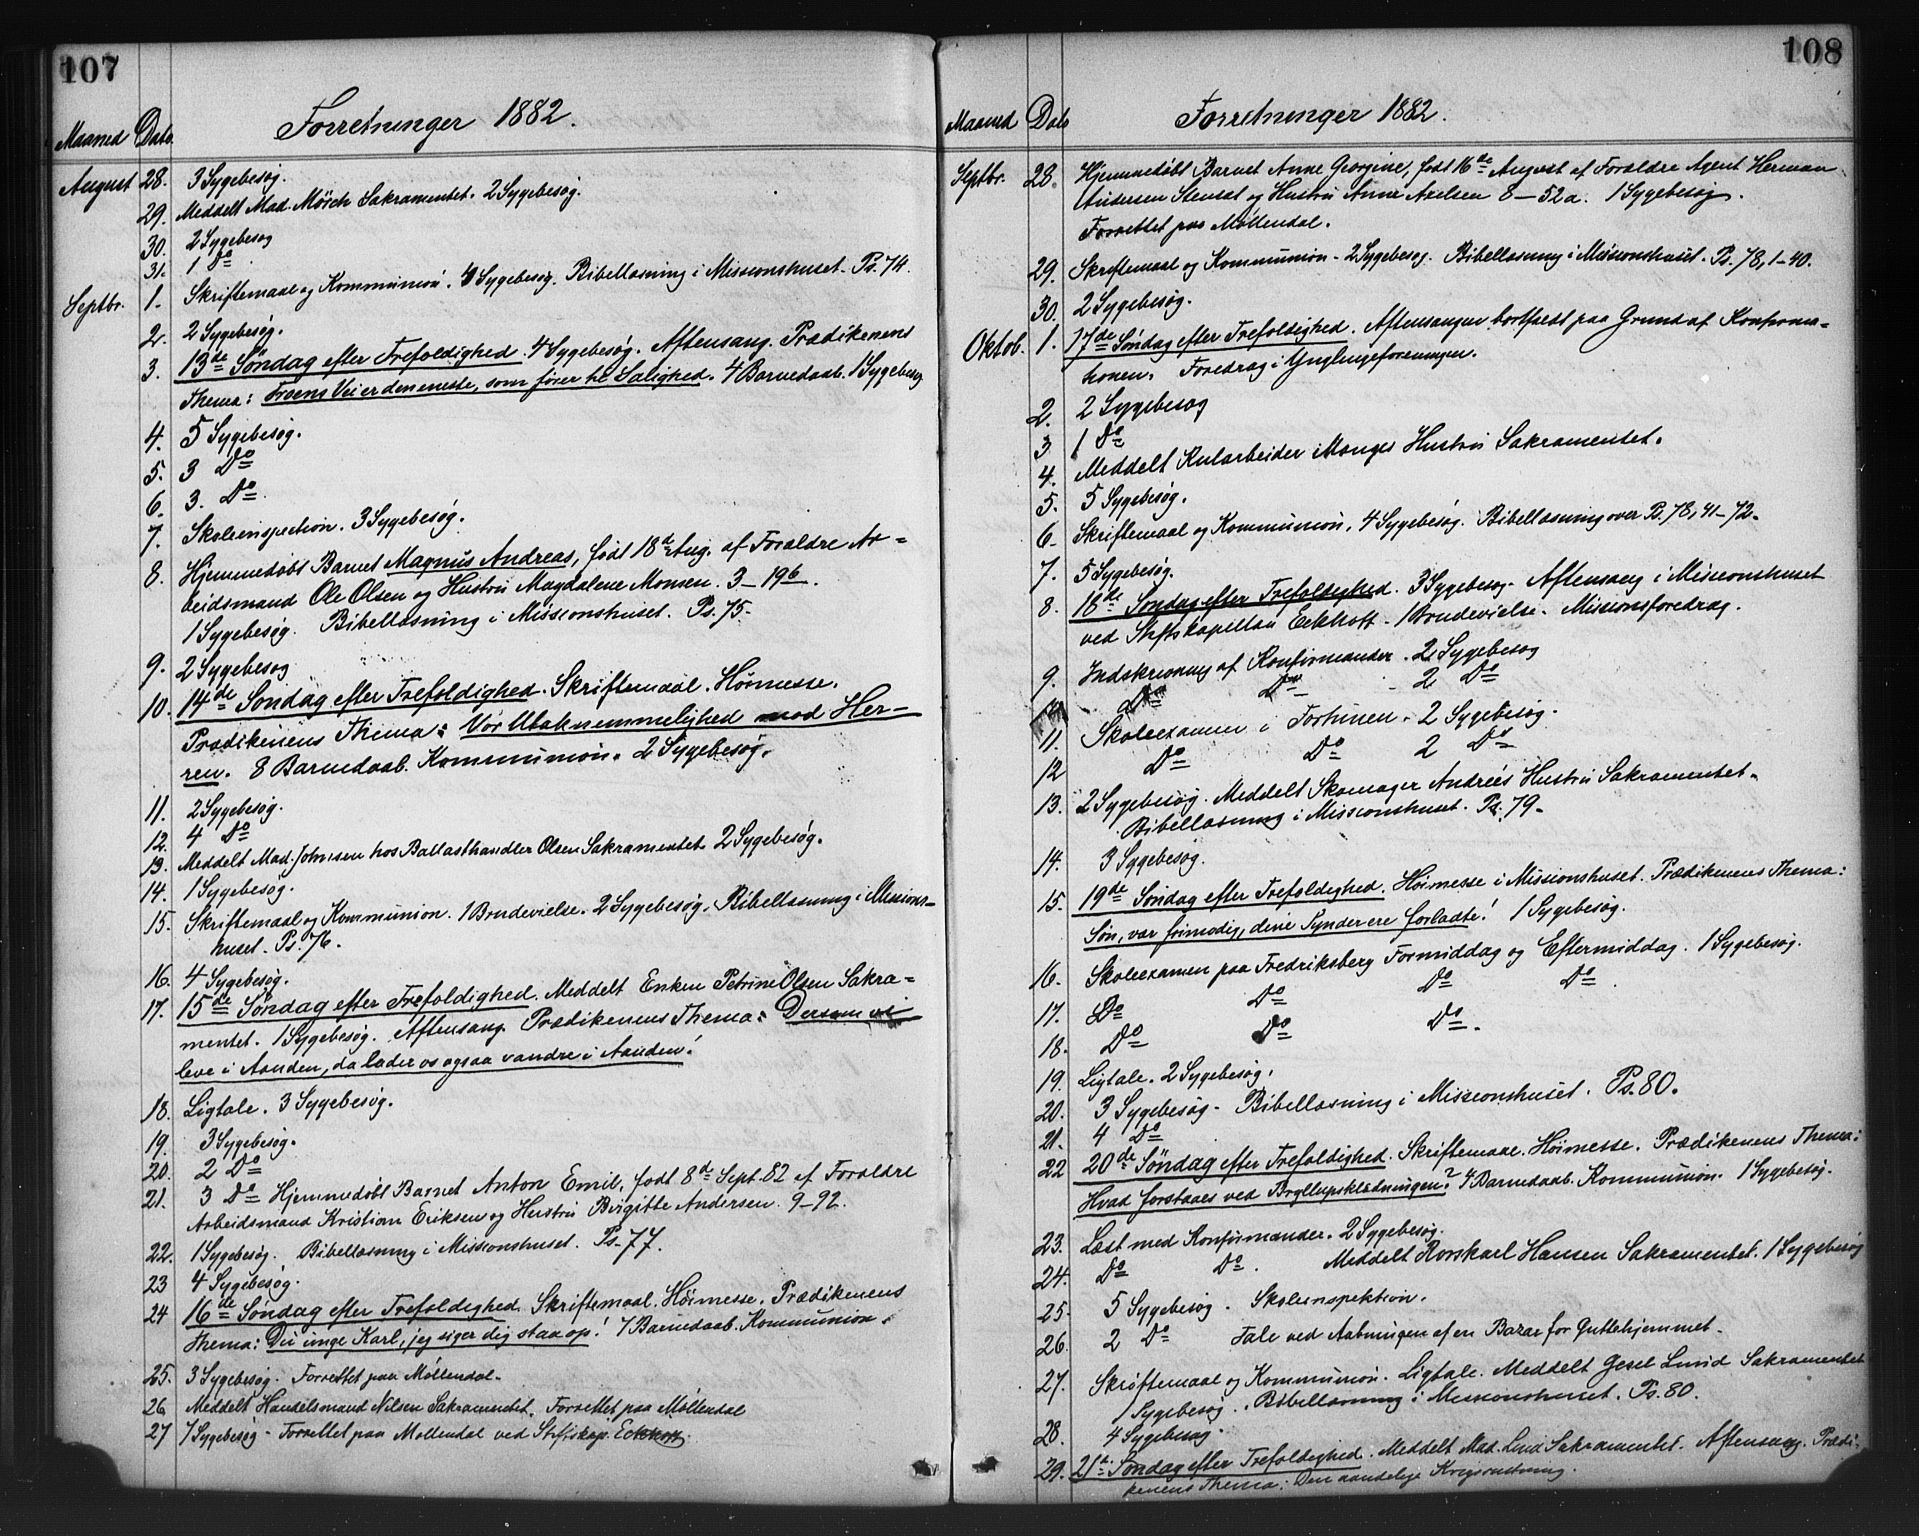 107
Forretninger 1882.
Maaned Dato.
August 28. 3 Sygebesøg.
29. Meddelt Mad. Mörch Sakramentet. 2 Sygebesøg.
30. 2 Sygebesøg
31. 1 Do
Septbr. 1. Skriftemaal og Kommunion. 4 Sygebesøg. Bibellæsning i Missionshuset. Ps. 74.
2. 2 Sygebesøg.
3. 13de Søndag efter Trefoldighed. 4 Sygebesøg. Aftensang. Prædikenens
Thema: Troens Vei er den eneste, som fører til Salighed. 4 Barnedaab. 1 Sygebesøg
4. 5 Sygebesøg.
5. 3 Do
6. 3. Do
7. Skoleinspection. 3 Sygebesøg.
8. Hjemmedøbt Barnet Magnus Andreas, født 18de Aug. af Forældre Ar-
beidsmand Ole Olsen og Hustru Magdalene Monsen. 3-19b.
1 Sygebesøg. Bibellæsning i Missionshuset. Ps. 75.
9. 2 Sygebesøg
10. 14de Søndag efter Trefoldighed. Skriftemaal. Høimesse.
Prædikenens Thema: Vor Utaknemmelighed mod Her-
ren. 8 Barnedaab. Kommunion. 2 Sygebesøg.
11. 2 Sygebesøg.
12. 4 Do
13. Meddelt Mad. Johnsen hos Ballasthandler Olsen Sakramentet. 2 Sygebesøg.
14. 1 Sygebesøg.
15. Skriftemaal og Kommunion. 1 Brudevielse. 2 Sygebesøg. Bibellæsning i Missions-
huset. Ps. 76.
16. 4 Sygebesøg.
17. 15de Søndag efter Trefoldighed. Meddelt Enken Petrine Olsen Sakra-
mentet. 1 Sygebesøg. Aftensang. Prædikenens Thema: Dersom vi
leve i Aanden, da lader os ogsaa vandre i Aanden!
18. Ligtale. 3 Sygebesøg.
19. 3 Sygebesøg.
20. 2 Do
21. 3 Do Hjemmedøbt Barnet Anton Emil, født 8de Sept. 82 af Forældre
Arbeidsmand Kristian Eriksen og Hustru Birgitte Andersen. 9-92.
22. 1 Sygebesøg. Bibellæsning i Missionshuset. Ps. 77.
23 4 Sygebesøg.
24 16de Søndag efter Trefoldighed. Skriftemaal. Høimesse. Prædikenens
Thema: Du unge Karl, jeg siger dig staa op! 7 Barnedaab. Kommunion.
25. 3 Sygebesøg. Forrettet paa Møllendal.
26 Meddelt Handelsmand Nilsen Sakramentet. Forrettet paa Møllendal
27 7 Sygebesøg. Forrettet paa Møllendal ved Stiftskap. Eckhoff.
108
Forretninger 1882.
Maaned Dato
Septbr. 28. Hjemmedøbt Barnet Anne Georgine, født 16de August af Forældre Agent Herman
Andersen Stendal og Hustru Anne Axelsen 8-52a. 1 Sygebesøg.
Forrettet paa Møllendal.
29. Skriftemaal og Kommunion. 2 Sygebesøg. Bibellæsning i Missionshuset. Ps. 78, 1-40.
30. 2 Sygebesøg.
Oktob. 1. 17de Søndag efter Trefoldighed. Aftensangen bortfaldt paa Grund af Konfirma-
tionen. Foredrag i Ynglingeforeningen.
2. 2 Sygebesøg
3 1 Do
4. Meddelt Kularbeider Monges Hustru Sakramentet.
5. 5 Sygebesøg.
6. Skriftemaal og Kommunion. 4 Sygebesøg. Bibellæsning over Ps. 78, 41-72.
7. 5 Sygebesøg.
8. 18de Søndag efter Trefoldighed. 3 Sygebesøg. Aftensang i Missionshuset
ved Stiftskapellan Eckhoff. 1 Brudevielse. Missionsforedrag.
9. Indskrivning af Konfirmander. 2 Sygebesøg
10 Do Do 2 Do
11. Skoleexamen i Fortunen. 2 Sygebesøg.
12 Do Do 2 Do
13. 2 Sygebesøg. Meddelt Skomager Andreés Hustru Sakramentet.
Bibellæsning i Missionshuset. Ps. 79.
14. 3 Sygebesøg.
15. 19de Søndag efter Trefoldighed. Høimesse i Missionshuset. Prædikenens Thema:
Søn, vær frimodig, dine Synder ere forladte! 1 Sygebesøg.
16. Skoleexamen paa Fredriksberg Formiddag og Eftermiddag. 1 Sygebesøg.
17. Do Do Do Do.
18. Do Do Do.
19. Ligtale. 2 Sygebesøg.
20. 3 Sygebesøg. Bibellæsning i Missionshuset. Ps. 80.
21. 4 Do
22 20de Søndag efter Trefoldighed. Skriftemaal. Høimesse. Prædikenens Thema:
Hvad forstaaes ved Bryllupsklædningen? 4 Barnedaab. Kommunion. 1 Sygebesøg.
23. Læst med Konfirmander. 2 Sygebesøg.
24. Do Do. Meddelt Rorskarl Hansen Sakramentet. 1 Sygebesøg
25. 5 Sygebesøg. Skoleinspektion.
26. 2 Do Tale ved Aabningen af en Bazar for Guttehjemmet.
27. Skriftemaal og Kommunion. Ligtale. Meddelt Gesel Lund Sakramentet
1 Sygebesøg. Bibellæsning i Missionshuset. Ps. 80.
28. 4 Sygebesøg.
29. 21de Søndag efter Trefoldighed. Meddelt Mad. Lind Sakramentet. Aftensang. Prædi-
kenens Thema: Den aandelige Krigsrustning.